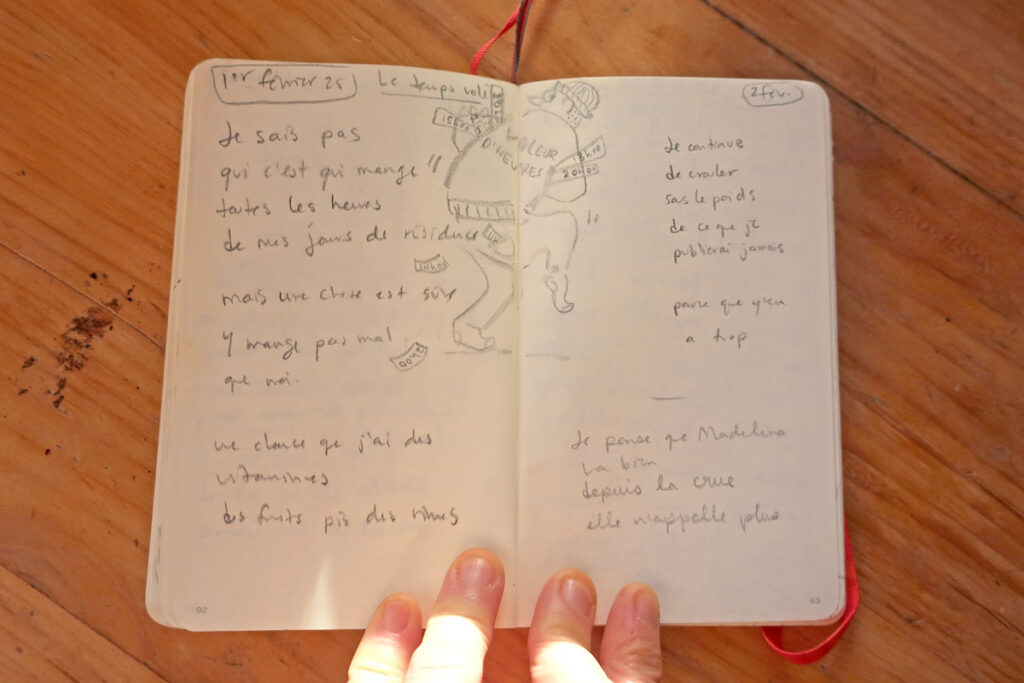 1er février 25
Le temps volé
15h00
VOLEUR
D'HEURES
10h00
Je sais pas
qui c'est qui mange
toutes les heures
de mes jours de résidence
mais une chose est sûre
Y mange pas mal
que moi.
une chance que j'ai des
vitamines
des fruits pis des rimes
92
2 fév.
Je continue
de crouler
sous le poids
de ce que je
publierai jamais
parce que y'en
a trop
Je pense que Madelina
va bien
depuis la crue
elle m'appelle plus
93